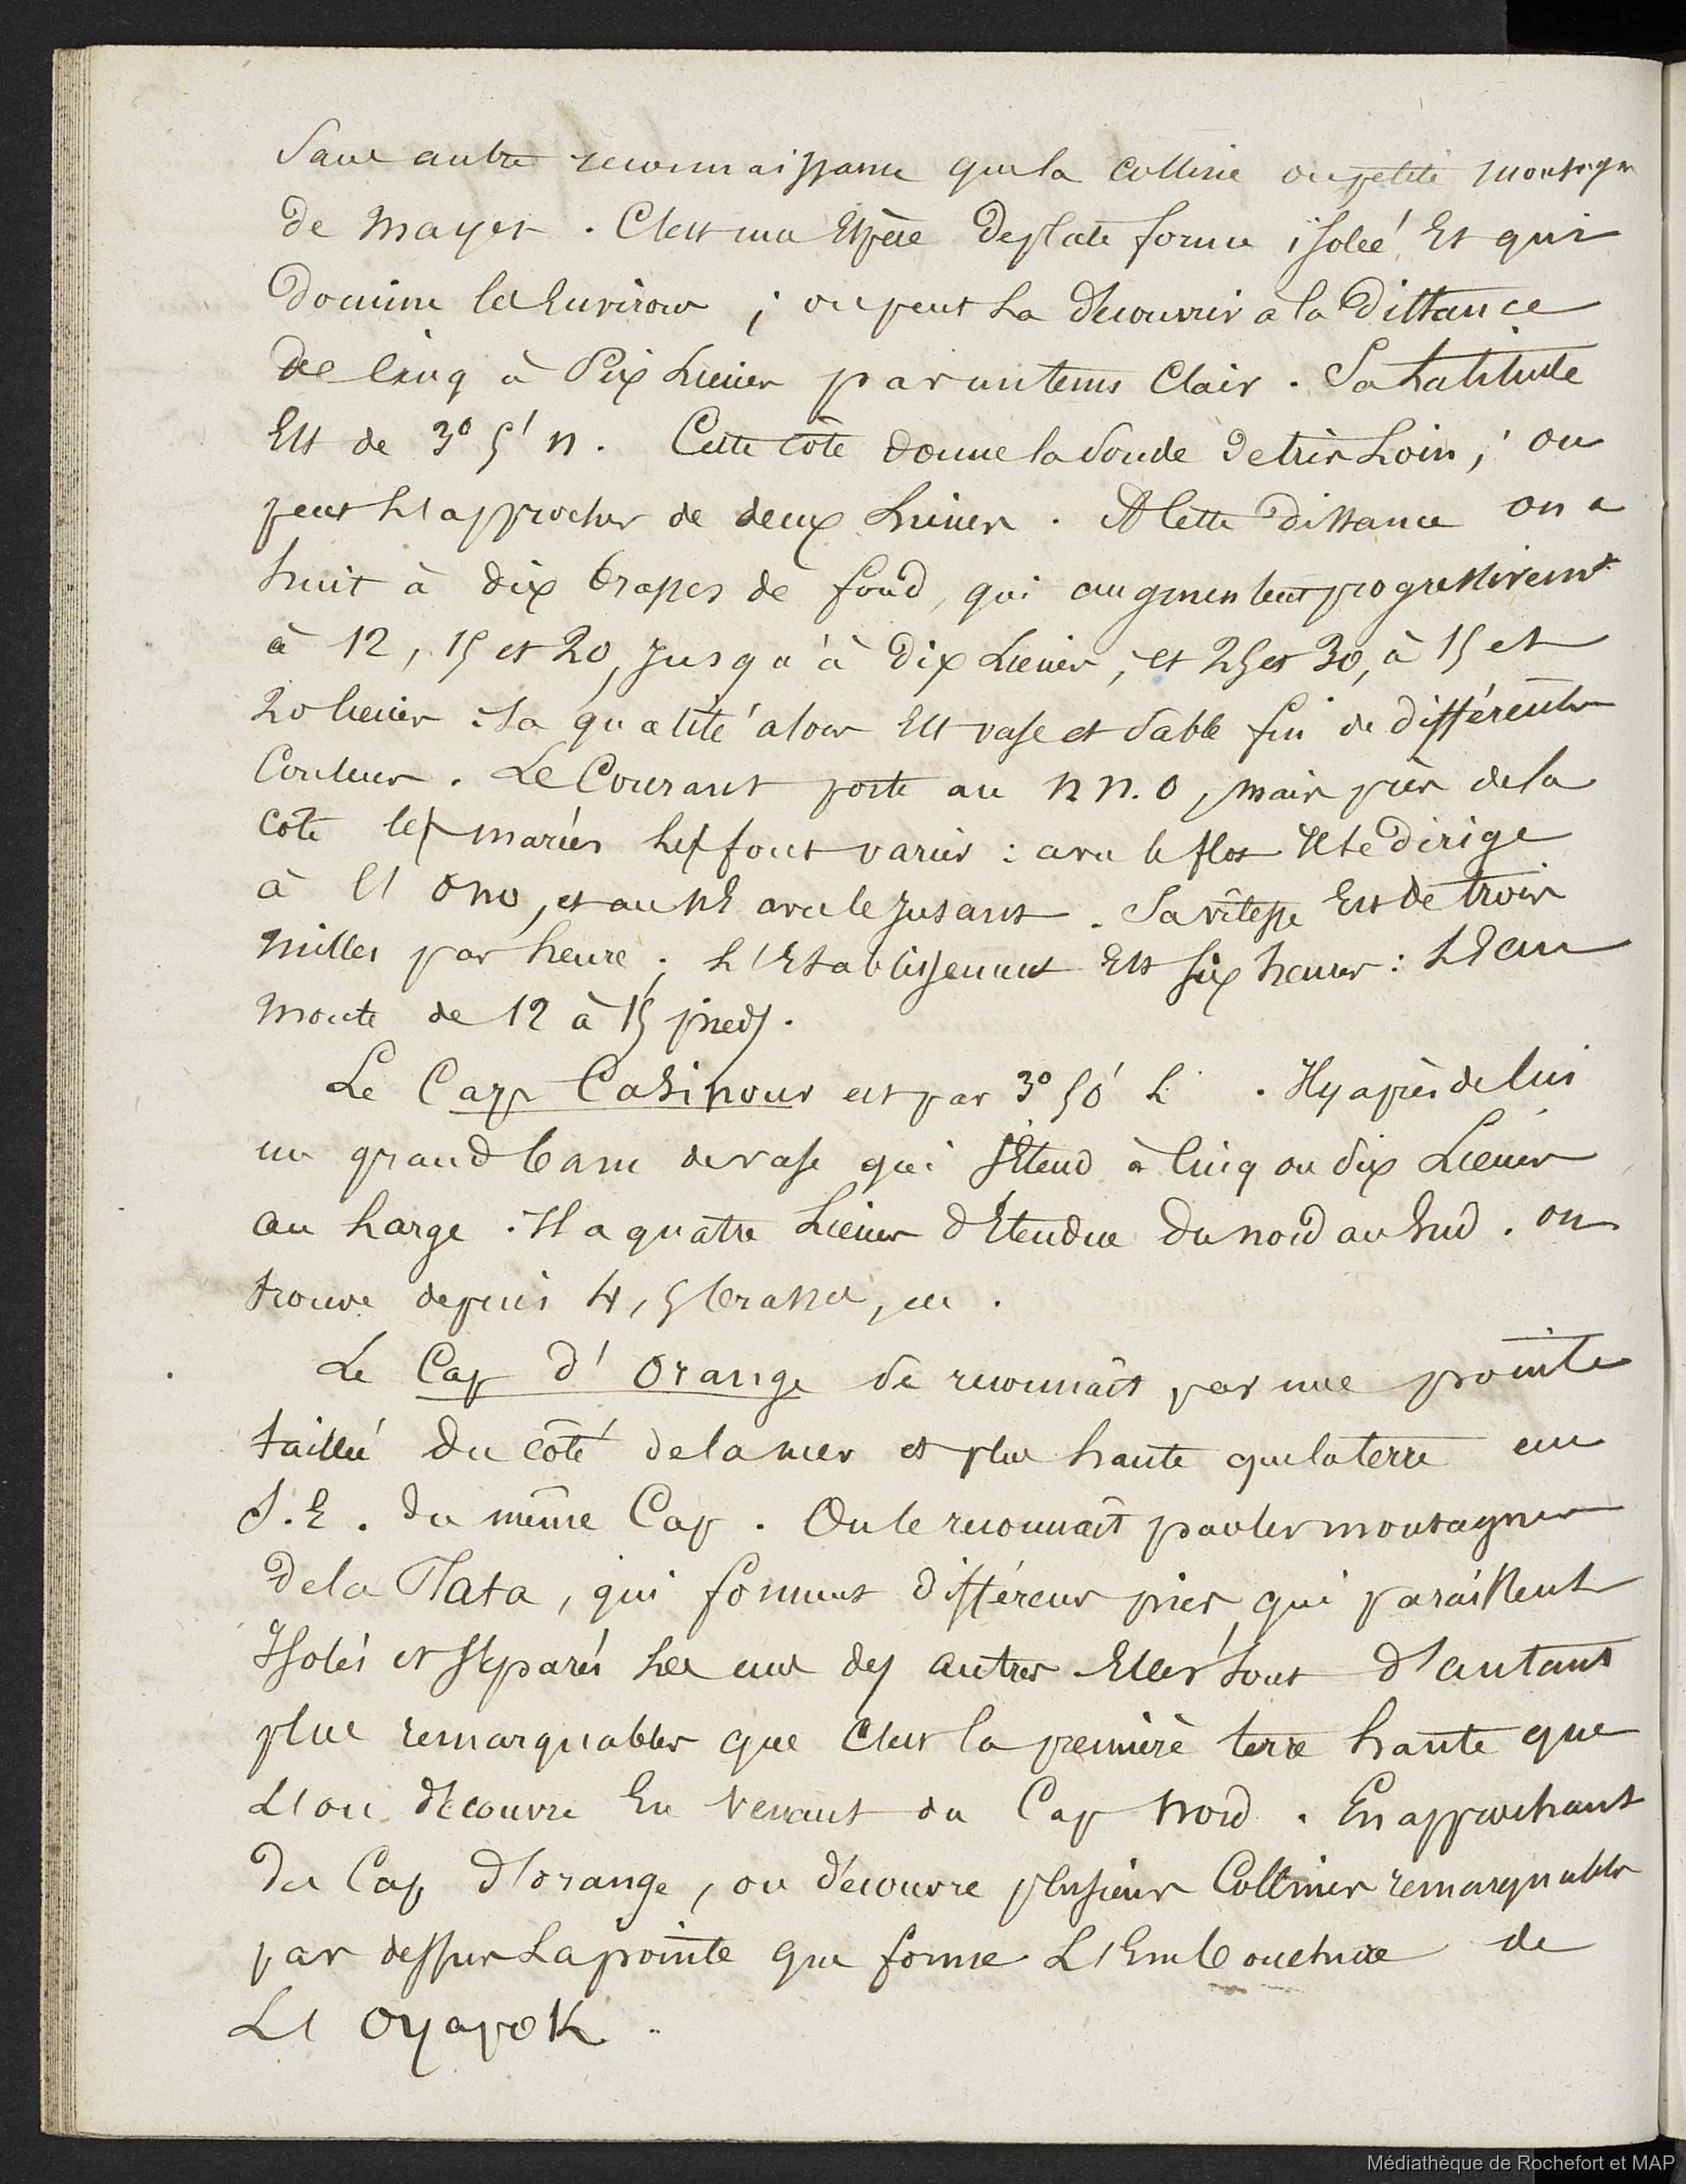 Sans autre reconnaissance que la colline ou petite montagne
de Mayes . C'est une Espèce de plate forme isoleé Et qui
Domine les Environs ; on peut La decouvrir a la Distance
de Cinq à Six Lieues par un tems Clair . Sa Latitude
Est de 3° 5' n . Cette côte donne la Sonde de très Loin ; on
peut L'approcher de deux Lieues . A Cette Distance on a
huit à dix brasses de fond, qui augmentent progressivemt
à 12, 15 et 20, Jusqu'à Dix Lieues, et 25 et 30, à 15 et
20 lieues : la qualité alors Est vase et Sable fin de différentes
Couleurs . Le Courant porte au n n. o, mais près de la
côte les marées les font varier : avec le flot Il se dirige
à l' ono, et au NE avec le Jusant . Sa vîtesse Est de trois
milles par heure ; L'Etablissement Est Six heures : L'Eau
monte de 12 à 15 pieds .
Le Cap Casipour est par 3° 50' L . Il y a près de lui
un grand banc de vase qui S'étend à Cinq ou Six Lieues
au Large . Il a quatre Lieues d'Etendue Du nord au Sud . on
trouve depuis 4, 5 brasses,
Le Cap d' Orange Se reconnaît par une pointe
taillée du côté de la mer et plus haute que la terre au
S. E . du même Cap . On le reconnaît par les montagnes
de la Plata, qui forment différens pics, qui paraissent
Isolés et Séparés Les uns des autres . Elles Sont d'autant
plus remarquables que C'est la première terre haute que
L'on découvre En Venant du Cap Nord . En approchant
du Cap d'orange, on découvre plusieurs Collines remarquables
par dessus La pointe que forme L'Embouchure de
L' Oyapok .
Médiathèque de Rochefort et MAP